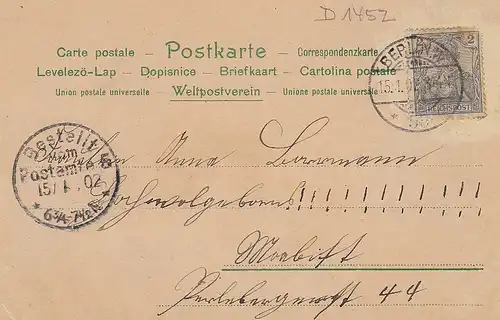 D 1452
Carte postale – Postkarte – Correspondenzkarte
Levelezö-Lap – Dopisnice – Briefkaart – Cartolina postale
Union postale universelle Weltpostverein Unione postale universale
BERLIN
15.1.02
2
REICHSPOST
Bestellt
vom
Postamte
15/1.02
6¾-7½N
Anna Borrmann
Hochwolgeboren!!!!!!!!!!
Moabit
Perlebergerstr 44